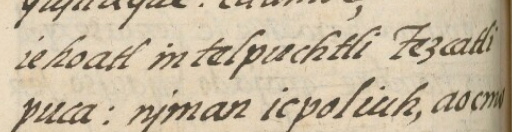 iehoatl in telpuchtli Tezcatli
puca: njman icpoliuh, aocmo